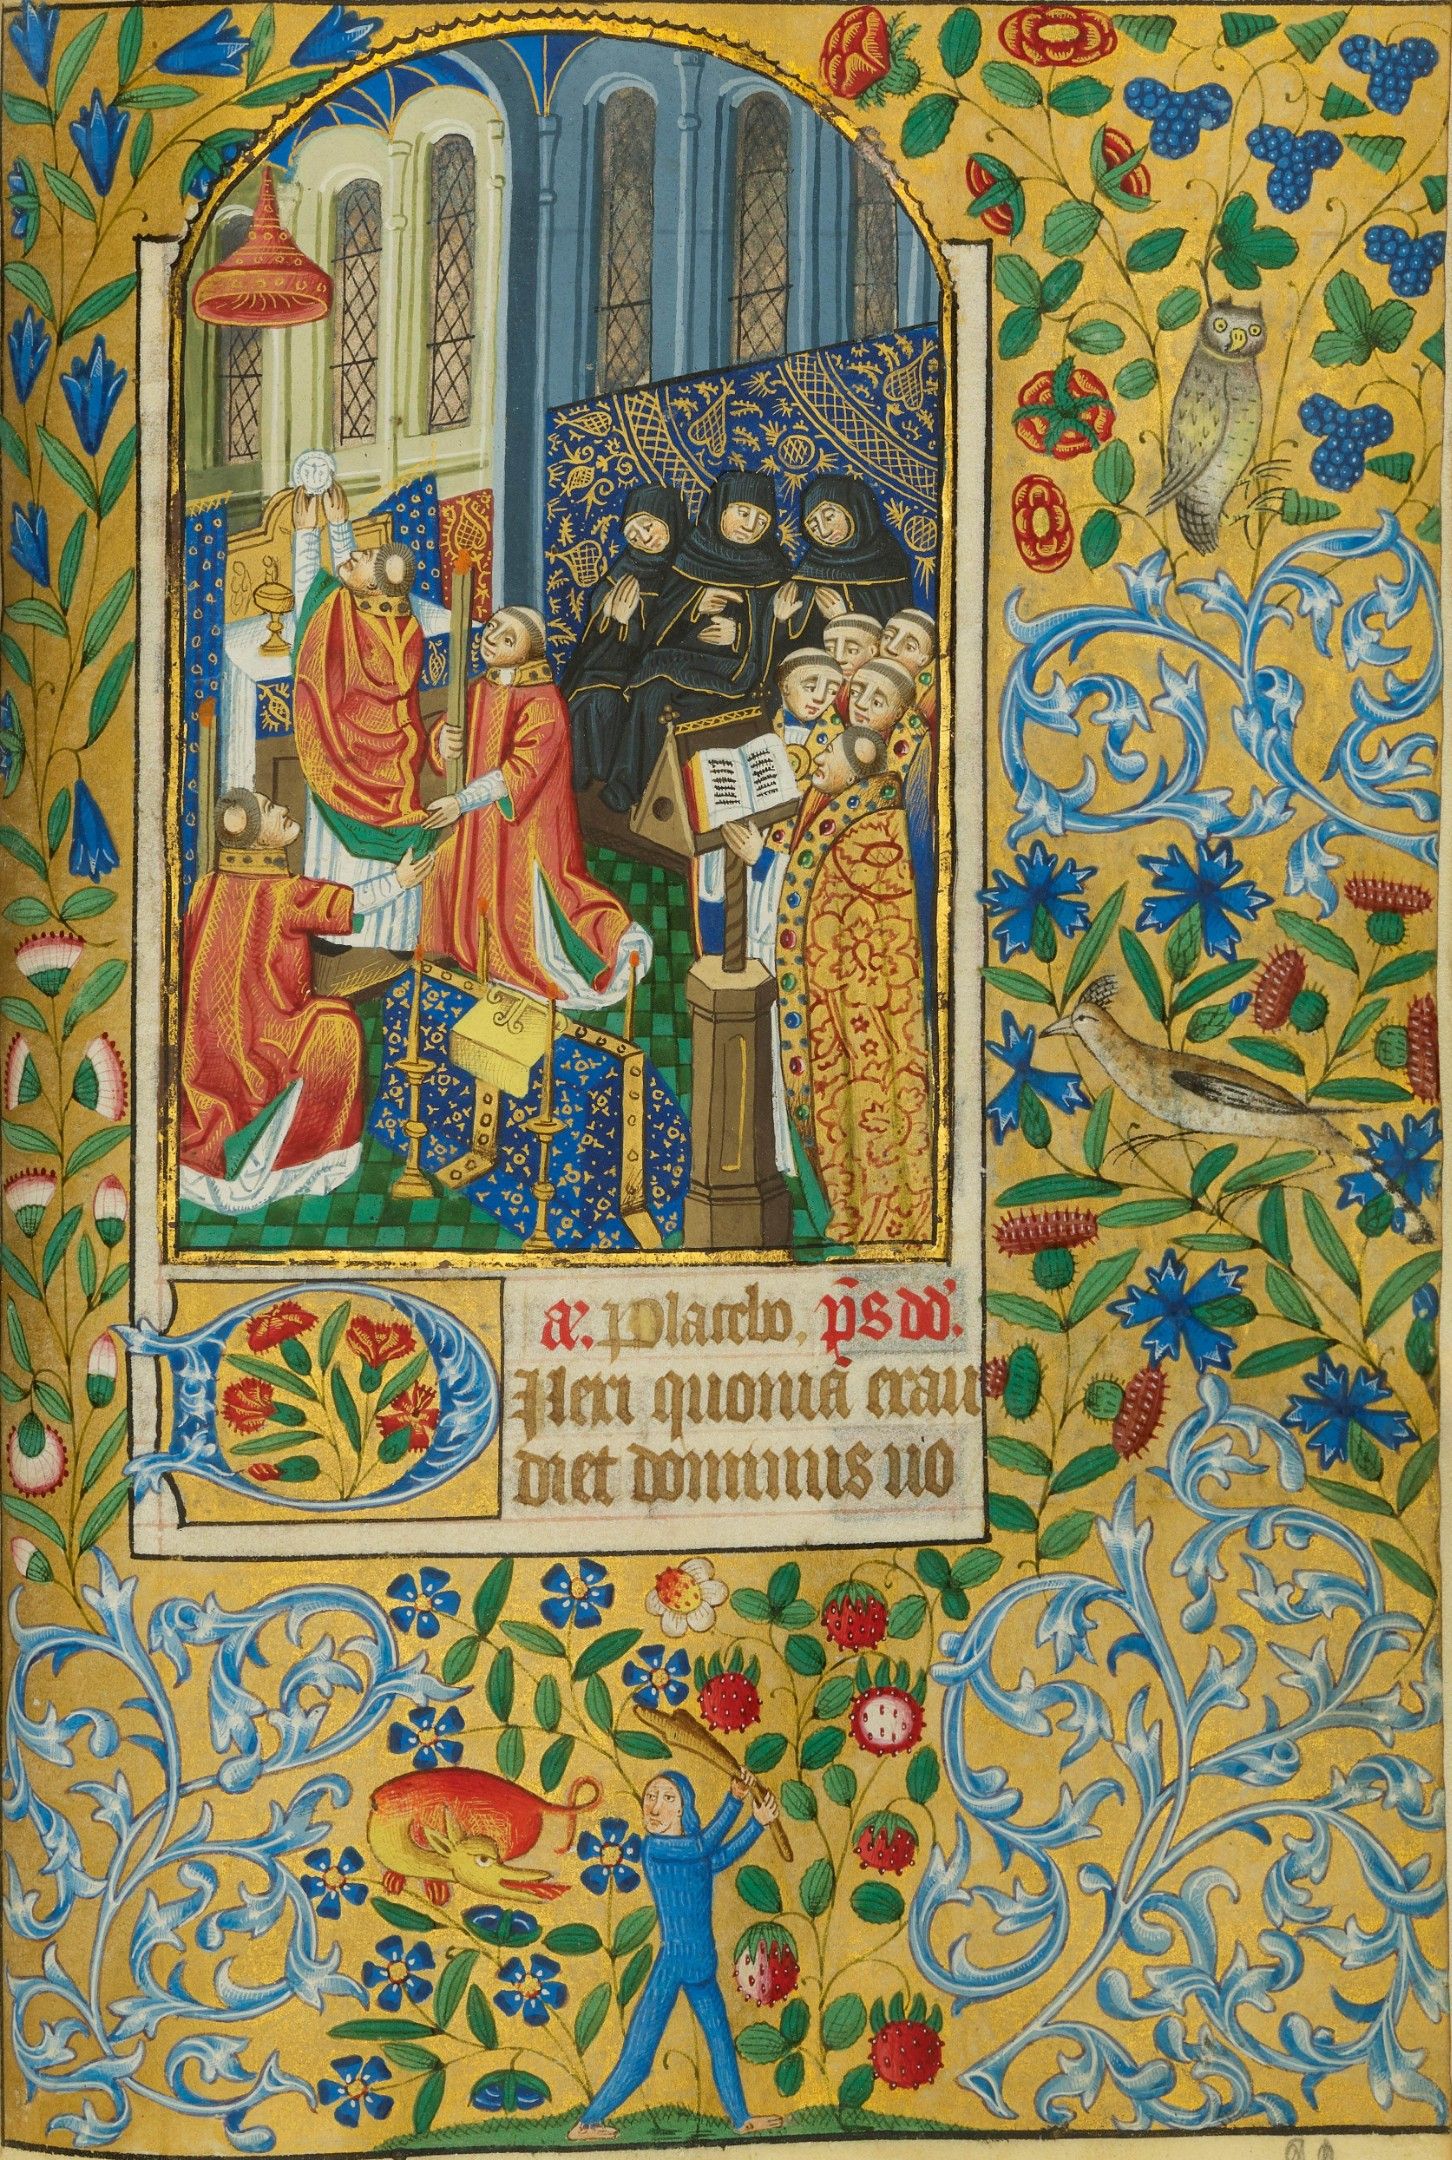 añ. Placebo. p̄s dd'.
DIlexi quoniā exau
diet dominus uo